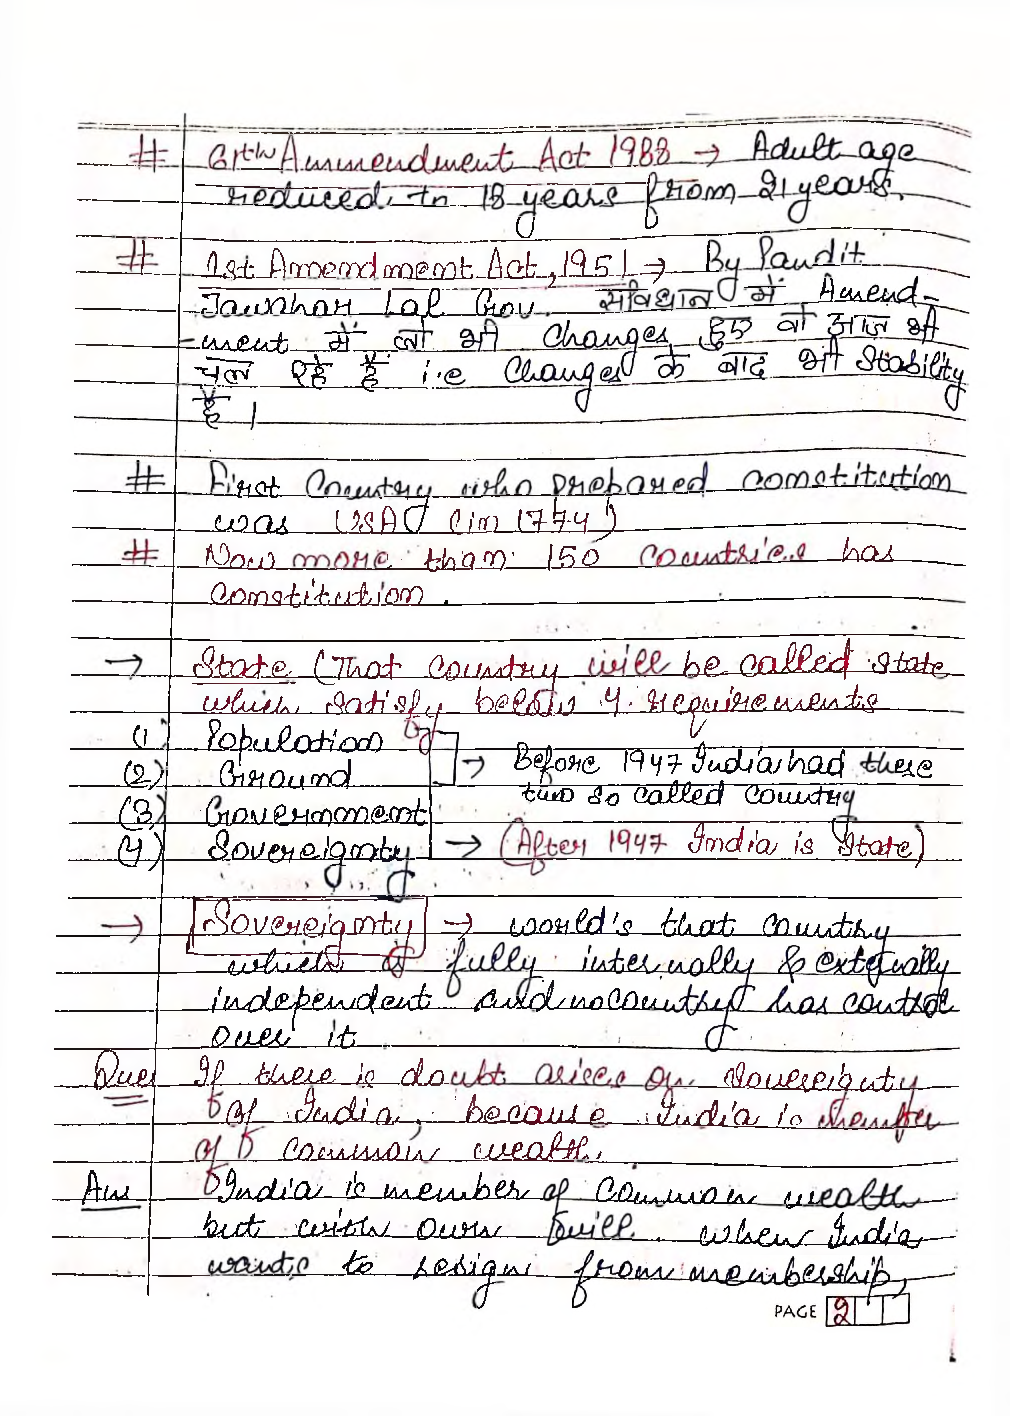 # 61th Ammendment Act 1988 → Adult age
reduced to 18 years from 21 years.
# 1st Amendment Act, 1951 → By Pandit
Jawahar Lal Gov. संविधान में Amend-
-ment में जो भी changes हुए वो आज भी
चल रहे हैं i.e Changes के बाद भी Stability
है।
# First Country who prepared constitution
was USA (in 1774)
# Now more than 150 Countries has
Constitution.
→ State (That country will be called state
which satisfy below 4 requirements
(1) Population
(2) Ground → Before 1947 India had these
two so called Country
(3) Government
(4) Sovereignty → (After 1947 India is State)
→ Sovereignty → world's that country
which is fully internally & externally
independent and no country has control
over it
Ques If there is doubt arises on Sovereignty
of India, because India is member
of common wealth.
Ans India is member of Common wealth
but with own will. when India
wants to resign from membership,
PAGE 2